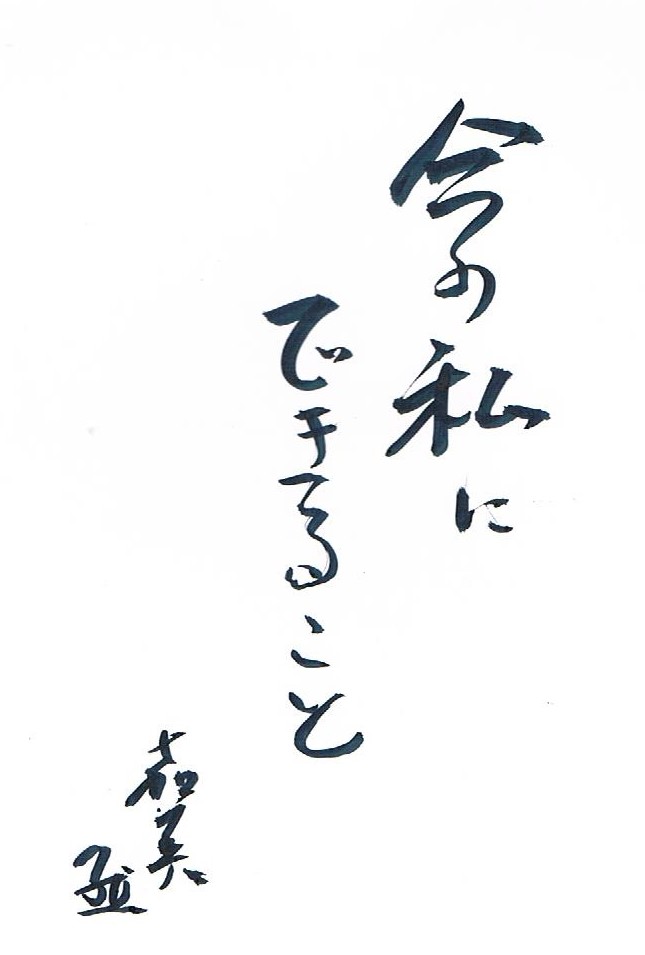 今の私に
できること